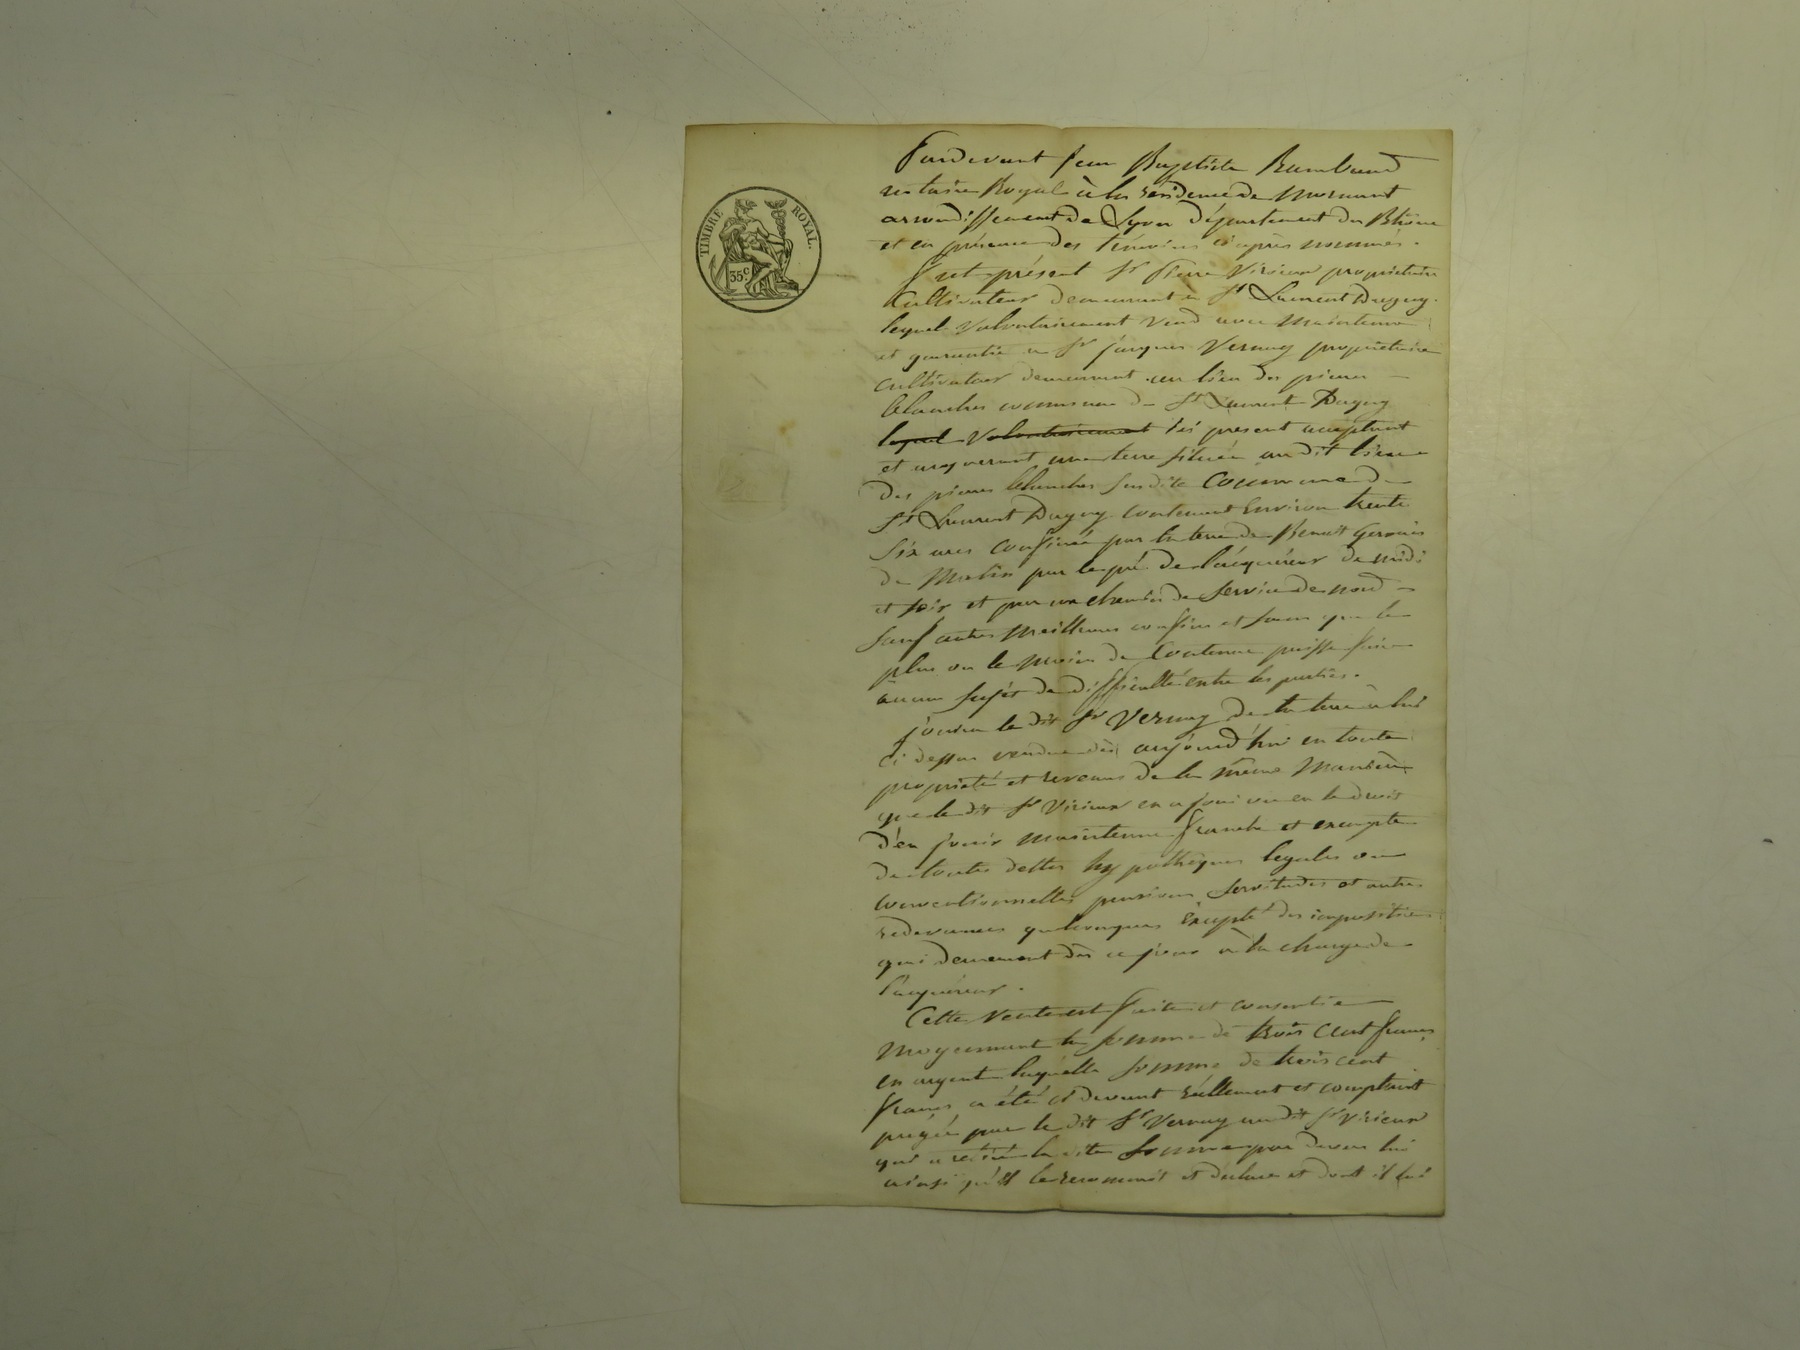 TIMBRE ROYAL.
35 c.
Pardevant Jean Baptiste Rambaud
notaire Royal à la résidence de Mornant
arrondissement de Lyon département du Rhône
et en présence des témoins ci après nommés.
fut présent Sr Pierre Virieux propriétaire
Cultivateur demeurant à St Laurent Dagny
lequel Volontairement vend avec Maintenue
et garantie à Sr jacques Vernay propriétaire
cultivateur demeurant au lieu des pierres
blanches commune de St Laurent Dagny
lequel Volontairement ici present acceptant
et acquerant une terre située au dit lieu
Des pierres blanches susdite Commune de
St Laurent Dagny contenant Environ trente
Six ares Confinée par la terre de Benoit Gervais
de Matin par le pré de l'acquéreur de midi
et soir et par un chemin de service de nord
sauf autres Meilleurs confins et sans que le
plus ou le moins de Contenue puisse faire
aucun sujet de difficulté entre les parties.
jouira le dit Sr Vernay de la terre à lui
ci dessus vendue dès aujourd'hui en toute
propriété et revenus de la même Manière
que le dit Sr Virieux en a joui ou eu le droit
d'en jouir maintenue franche et exempte
de toutes dettes hypothèques legales ou
conventionnelles pensions servitudes et autres
redevances quelconques Excepté des impositions
qui demeurent dès ce jour à la charge de
l'acquéreur.
Cette Vente est faite et consentie
moyennant la somme de trois Cent francs
en argent laquelle somme de trois cent
francs a été ci devant réellement et comptant
payée par le dit Sr Vernay au dit Sr Virieux
qui a retiré la dite Somme par devers lui
ainsi qu'il le reconnoit et déclare et dont il lui